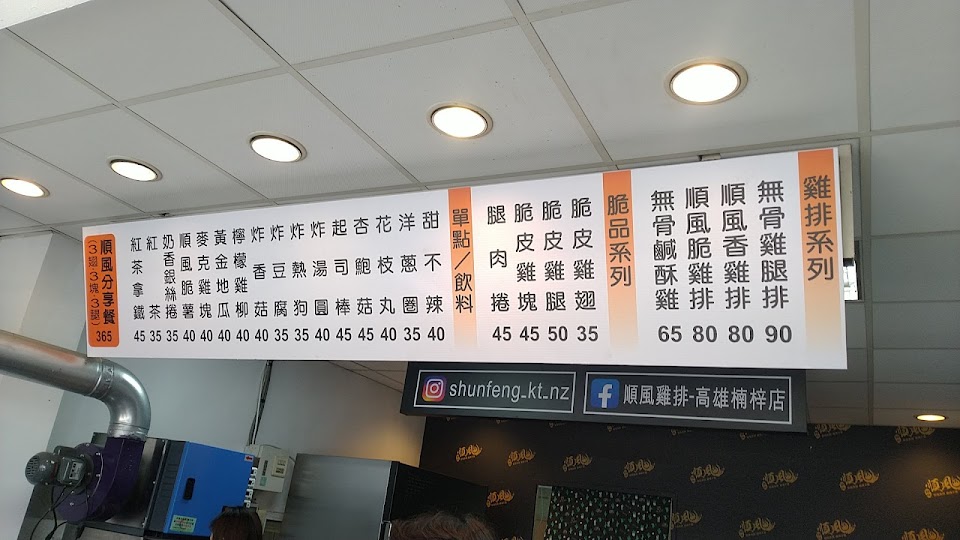 雞排系列
無骨雞腿排 90
順風香雞排 80
順風脆雞排 80
無骨鹹酥雞 65
脆品系列
脆皮雞翅 35
脆皮雞腿 50
脆皮雞塊 45
腿肉捲 45
單點/飲料
甜不辣 40
洋蔥圈 35
花枝丸 40
杏鮑菇 45
起司棒 45
炸湯圓 40
炸熱狗 35
炸豆腐 35
炸香菇 40
檸檬雞柳 40
黃金地瓜 40
麥克雞塊 40
順風脆薯 40
奶香銀絲捲 35
紅茶 35
紅茶拿鐵 45
順風分享餐
(3翅.3塊.3腿)
365
shunfeng_kt_nz
順風雞排-高雄楠梓店
順風